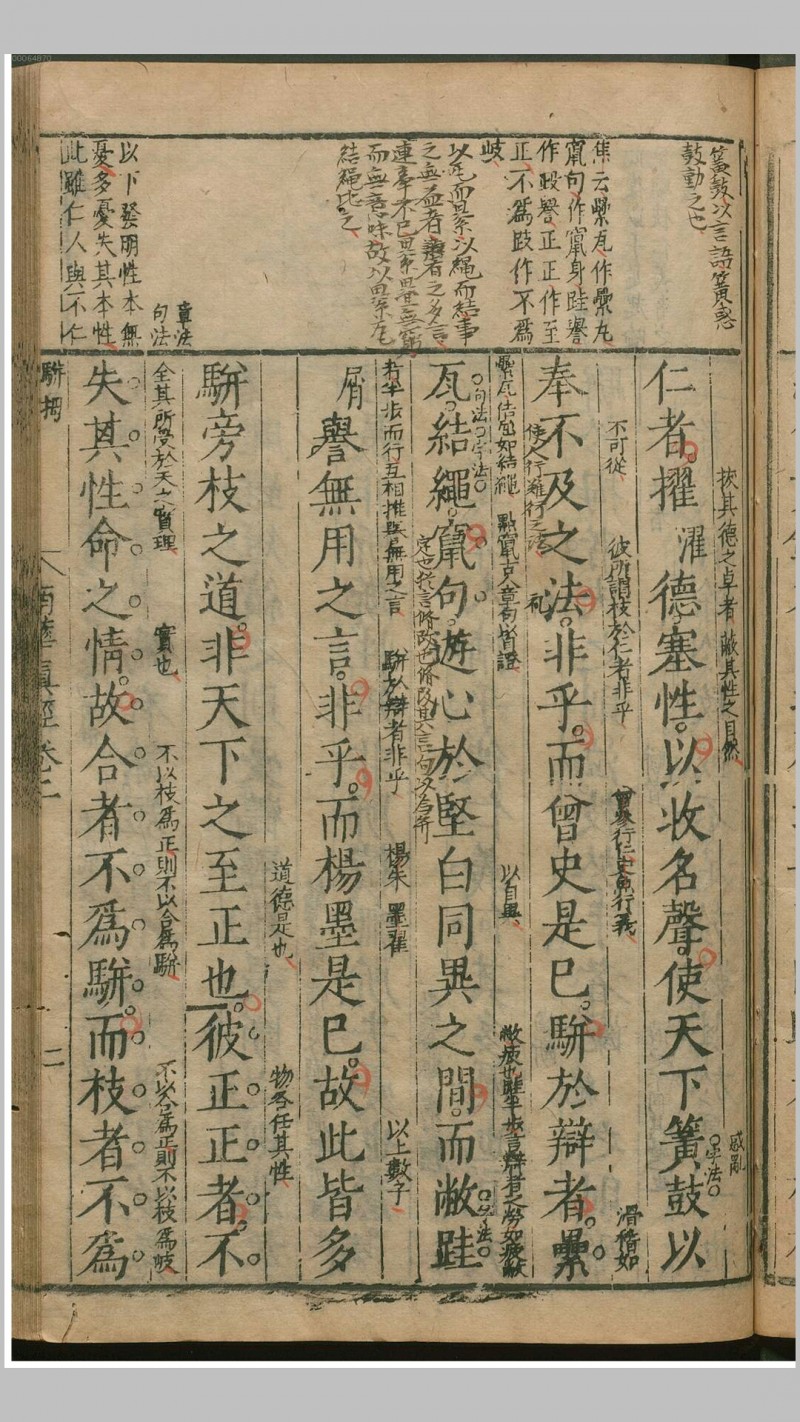 00064870
簧鼓以言語簧惑
鼓動之也
焦云纍瓦作纍丸
竄句作竄身跬譽
作跂譽正正作至
正不爲跂作不爲
岐
以瓦而累以繩而結事
之無益者辯者之多言
連牽不已
而無意味故以累瓦
結繩比之
章法
句法
以下發明性本無
憂多憂失其本性
此雖仁人與不仁
拔其德之卓者 蔽其性之自然
惑亂
字法
仁者擢德塞性以收名聲使天下簧鼓以
濯
不可從 彼所謂枝於仁者非乎 曾參行仁史魚行義
奉不及之法非乎而曾史是已駢於辯者纍
使人行難行之法
纍瓦結句如結繩 點竄古人章句以爲證 以自異 敝疲也跬半步言辯者之勞如疲敝
瓦結繩竄句遊心於堅白同異之間而敝跬
句法 字法
字法
者半步而行互相推與無用之言 駢於辯者非乎 楊朱 墨翟 以上數子
屑
譽無用之言非乎而楊墨是已故此皆多
道德是也 物各任其性
駢旁枝之道非天下之至正也彼正正者不
全其所受於天之實理 實也 不以枝爲正則不以合爲駢 不以合爲正則不以枝爲岐
失其性命之情故合者不爲駢而枝者不爲
駢拇
南華眞經卷二
二